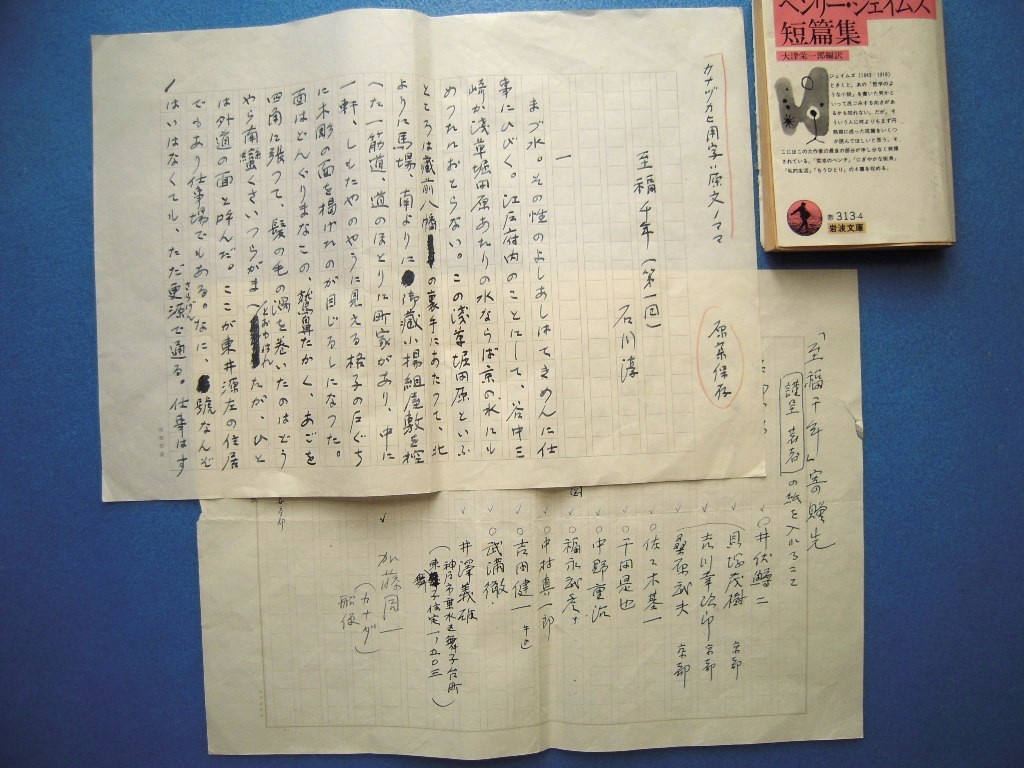 カナヅカヒ用字ハ原文ノママ
原稿保存
至福千年(第一回)
石川淳
一
まづ水。その性のよしあしはてきめんに仕
事にひびく。江戸府内のことにして、谷中三
崎か浅草堀田原あたりの水ならば京の水にも
めつたにおとらない。この浅草堀田原といふ
ところは蔵前八幡の裏手にあたつて、北
よりに馬場、南よりに御蔵小揚組屋敷を控
へた一筋道、道のほとりに町家があり、中に
一軒、しもたやのやうに見える格子の戸ぐち
に木彫の面を掲げたのが目じるしになつた。
面はどんぐりまなこの、鷲鼻たかく、あごを
四角に張つて、髪の毛の渦を巻いたのはどう
やら南蠻くさいつらがまへたが、ひと
は外道の面と呼んだ。ここが東井源左の住居
でもあり仕事場でもある。なに、號なんぞ
はいはなくても、ただ更源で通る。仕事はす
「至福千年」寄贈先
謹呈 著者 の紙を入れること
井伏鱒二
貝塚茂樹 京都
吉川幸次郎 京都
桑原武夫 京都
佐々木基一
千田是也
中野重治
福永武彦
中村真一郎
吉田健一
武満徹
井澤義雄
(神戸市垂水区舞子台町
加藤周一
(カナダ)
船便
ヘンリー・ジェイムズ
短篇集
大津栄一郎編訳
赤313-4
岩波文庫